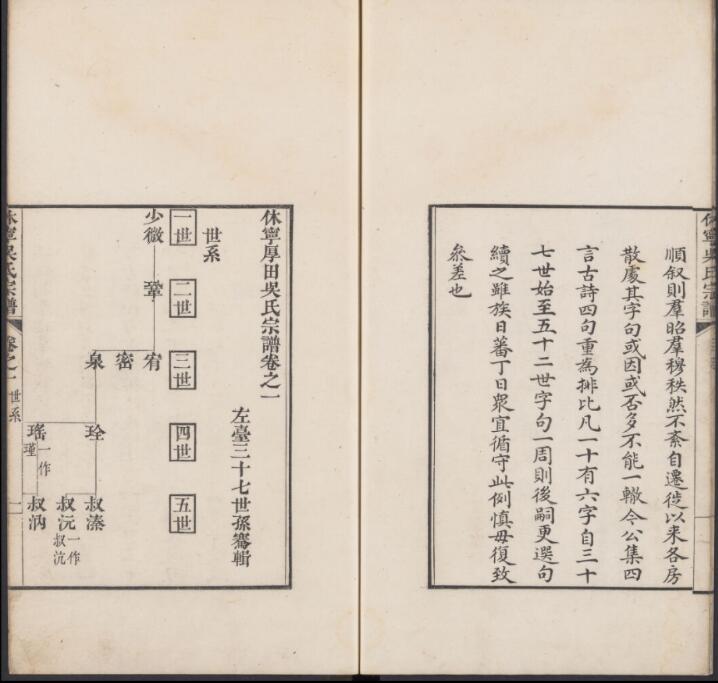 順叙則羣昭羣穆秩然不紊自遷徙以来各房
散處其字句或因或否多不能一轍今公集四
言古詩四句重為排比凡一十有六字自三十
七世始至五十二世字句一周則後嗣更選句
續之雖族日蕃丁日衆宜循守此例慎毋復致
叅差也
休寧厚田吳氏宗譜卷之一
左臺三十七世孫騫輯
世系
一世 二世 三世 四世 五世
少微 鞏 宥
密
泉 玪 叔溱
叔沅一作叔沆
瑤一作瑾 叔汭
休寧吳氏宗譜 卷之一 世系 一